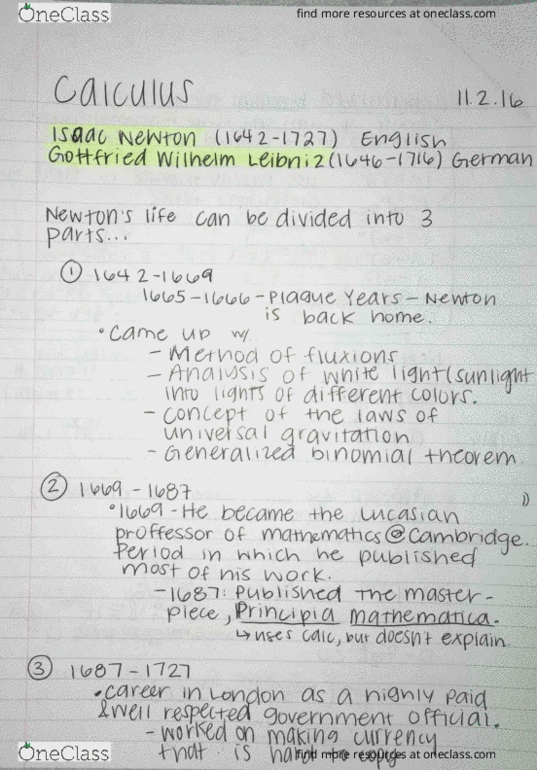 OneClass
find more resources at oneclass.com
Calculus 11.2.16
Isaac Newton (1642-1727) English
Gottfried Wilhelm Leibniz (1646-1716) German
Newton's life can be divided into 3
parts...
① 1642-1669
1665-1666-Plague Years - Newton
is back home.
• Came up w/
- Method of fluxions
- Analysis of white light (sunlight
into lights of different colors.
- concept of the laws of
universal gravitation
- Generalized binomial theorem.
② 1669-1687
• 1669 - He became the Lucasian
proffessor of mathematics @ Cambridge.
Period in which he published
most of his work.
- 1687: Published the master-
piece, Principia Mathematica.
↳ uses calc, but doesn't explain
③ 1687-1727
• career in London as a highly paid
& well respected government official.
- worked on making currency
that is hard to copy
OneClass
find more resources at oneclass.com